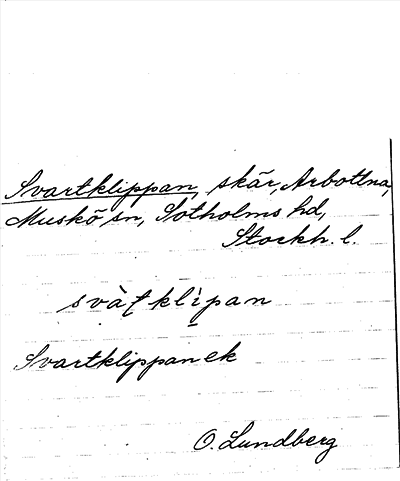 Svartklippan, skär, Arbottna,
Muskö sn, Sotholms hd,
Stockh. l.
svàʈklìpan
Svartklippan ek
O. Lundberg